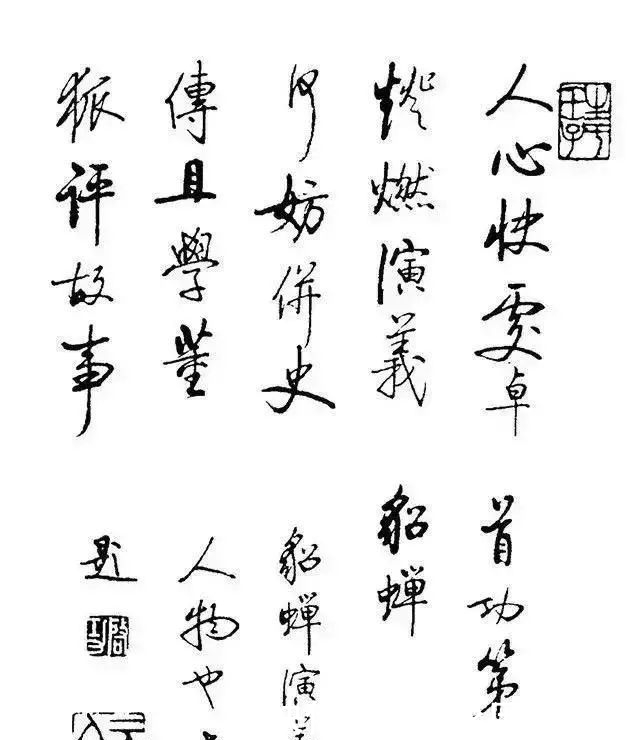 人心快處卓
燈燃演義
何妨併史
傳且學董
狐評故事
首功第
貂蝉
貂蝉演
人物也
題